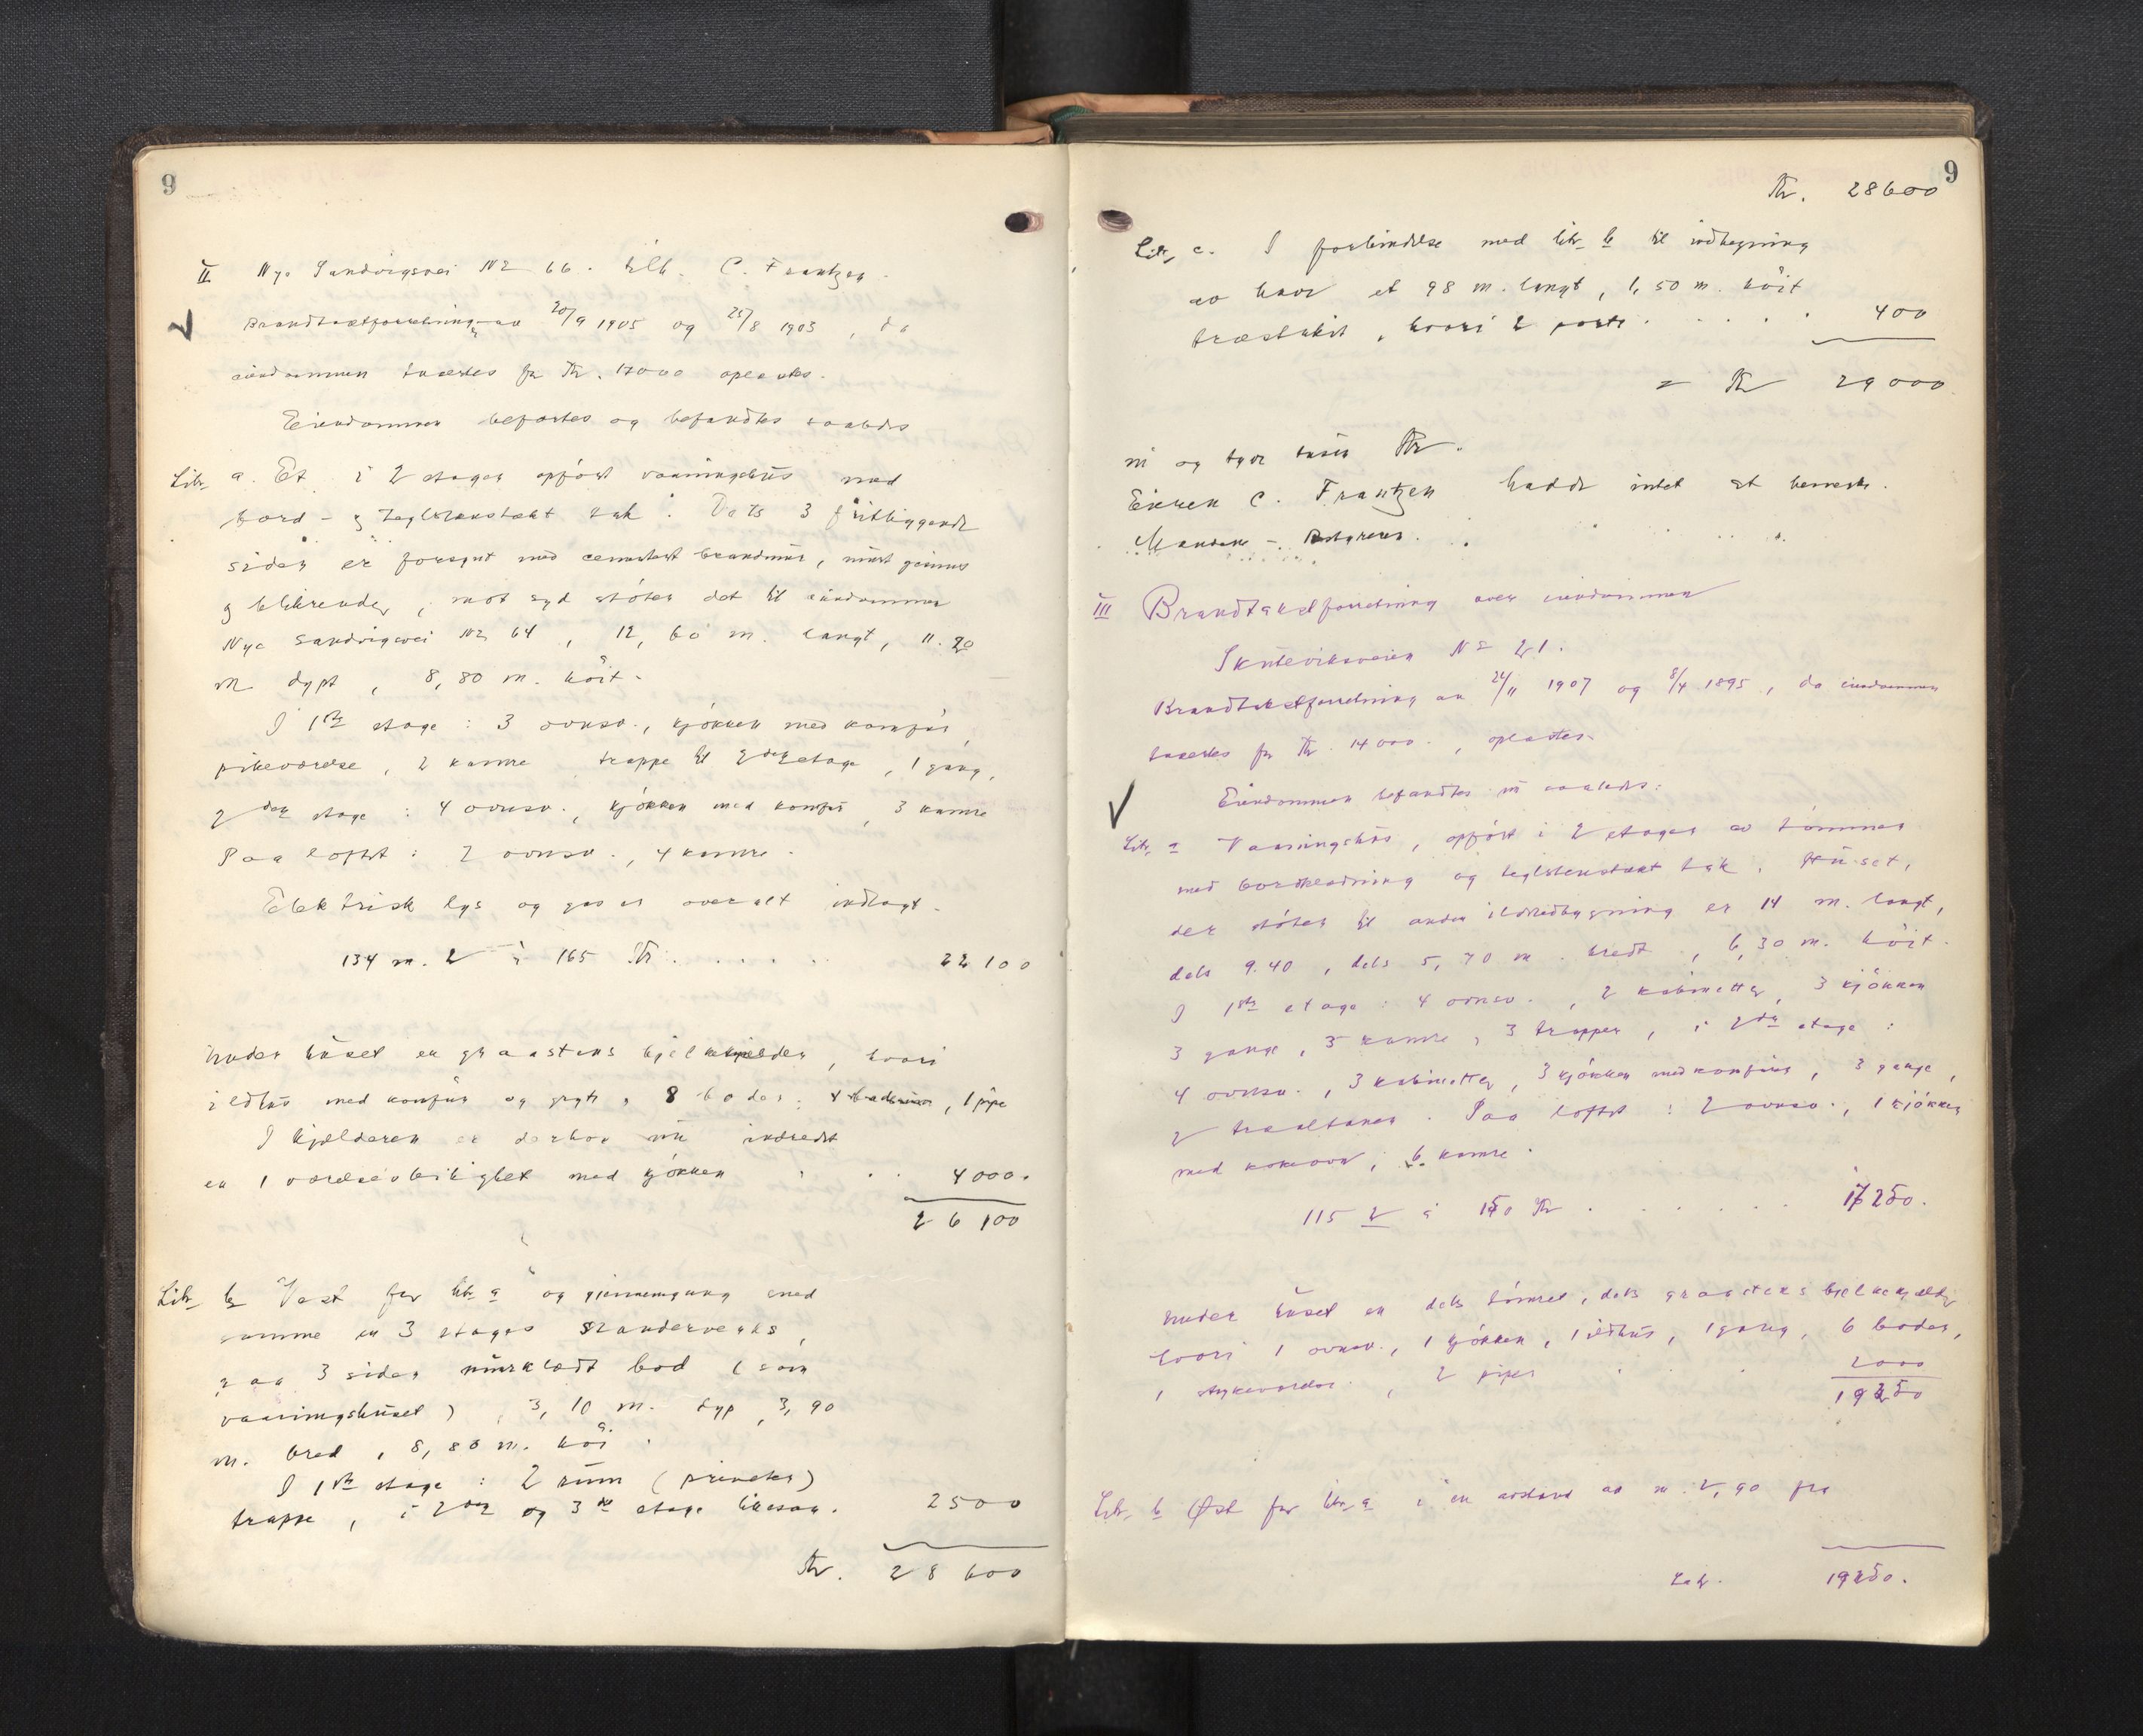 9
II Nye Sandvigsvei No 66. tilh. C. Frantzen.
Brandtaxtforretning av 20/9 1905 og 25/8 1903, da
eiendommen taxertes for Kr. 17000 oplæstes.
Eiendommen befartes og befandtes saaledes
Litr. a. Et i 2 etager opført vaaningshus med
bord- og teglstenstækt tak. Dets 3 fritliggende
sider er forsynt med cementert brandmur,
og blikrender, mot syd støter det til eiendommen
Nye Sandvigsvei No 64, 12,60 m. langt, 11.20
m dypt, 8,80 m. höit.
I 1ste etage: 3 ovnsv., kjøkken med komfur,
pikeværelse, 2 kamre trappe til 2den etage, 1 gang,
2den etage: 4 ovnsv., kjøkken med komfur, 3 kamre
Paa loftet: 2 ovnsv., 4 kamre.
Elektrisk lys og gas er overalt indlagt.
134 m. 2 à 165 Kr. . . . . . 22100
Under huset en graastens bjelkekjelder, hvori
ildhus med komfur og gryte, 8 boder, 1 pipe
I kjælderen er derhos nu indredet
en 1 værelses beleilighet med kjøkken . . . 4000.
26100
Litr. b Vest for litr. a og gjennemgang med
samme en 3 etages standerverks,
paa 3 sider murklædt bod (som
vaaningshuset), 3,10 m. dyp, 3,90
m. bred, 8,80 m. höi.
I 1ste etage: 2 rum (priveter)
trappe, i 2den og 3de etage likesaa. 2500
Kr. 28600
9
Kr. 28600
Litr. c. I forbindelse med litr. b til indhegning
av have et 98 m. langt, 1,50 m. höit
træstakit, hvori 2 porte . . . . . 400
= Kr 29000
ni og tyve tusen Kr.
Eieren C. Frantzen hadde intet at bemerke.
III Brandtakstforretning over eiendommen
Skuteviksveien No 21.
Brandtakstforretning av 24/11 1907 og 8/4 1895, da eiendommen
taxertes for Kr. 14000., oplæstes.
Eiendommen befandtes nu saaledes:
Litr. a Vaaningshus, opført i 2 etager av tømmer
med bordklædning og teglstenstækt tak. Huset,
der støter til anden bygning er 14 m. langt,
dels 9.40, dels 5,70 m. bredt, 6,30 m. höit.
I 1ste etage: 4 ovnsv., 2 kabinetter, 3 kjökken
3 gange, 3 kamre, 3 trapper, i 2den etage:
4 ovnsv., 3 kabinetter, 3 kjøkken med komfur, 3 gange,
2. Paa loftet: 2 ovnsv., 1 kjøkken
med kokeovn, 6 kamre.
115 2 à 150 Kr . . . . . . 17250.
Under huset en dels tømret, dels graastens bjelkekjælder
hvori 1 ovnsv., 1 kjøkken, 1 ildhus, 1 gang, 6 boder,
1 strykeværelse, 2 piper . . . 2000
19250
Litr. b Øst for litr. a i en avstand av m. 2,90 fra
Lat. 19250.